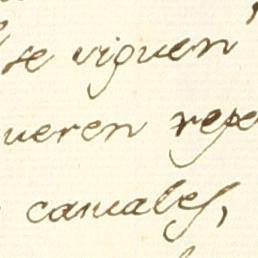 se viguen
ueren repe
casuales,